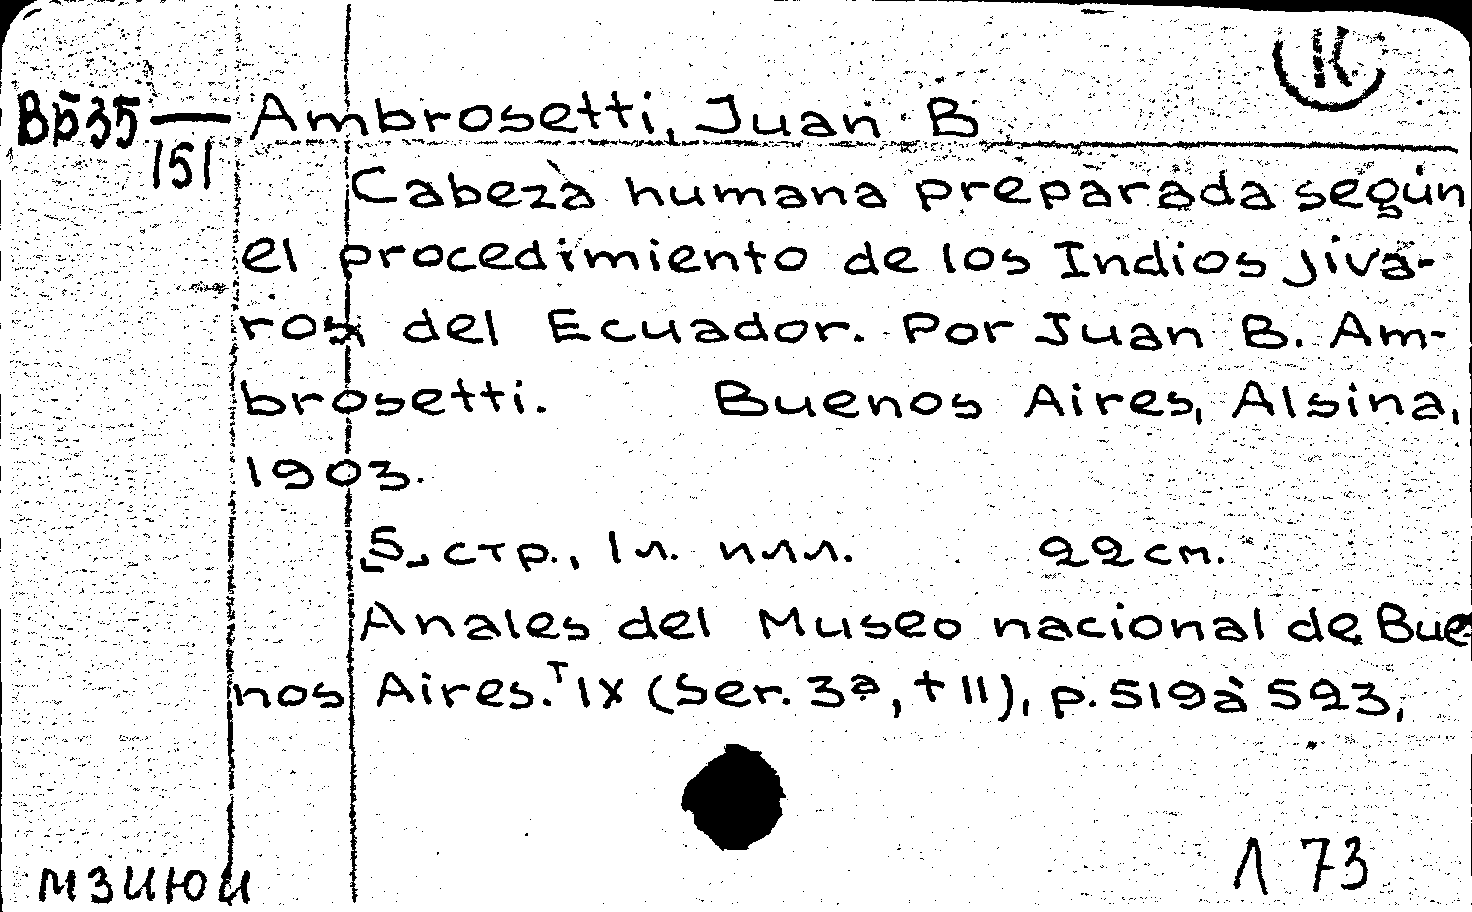 К
Вб35 — Ambrosetti, Juan B
151
Cabeza humana preparada según
el procedimiento de los Indios Jiva-
ros del Ecuador. Por Juan B. Am-
brosetti. Buenos Aires, Alsina,
1903.
5 стр., 1 л. илл. 22 см.
Anales del Museo nacional de Bue
nos Aires. T IX (Ser. 3ª, t II), p. 519 à 523,
мзиюи
Л 73